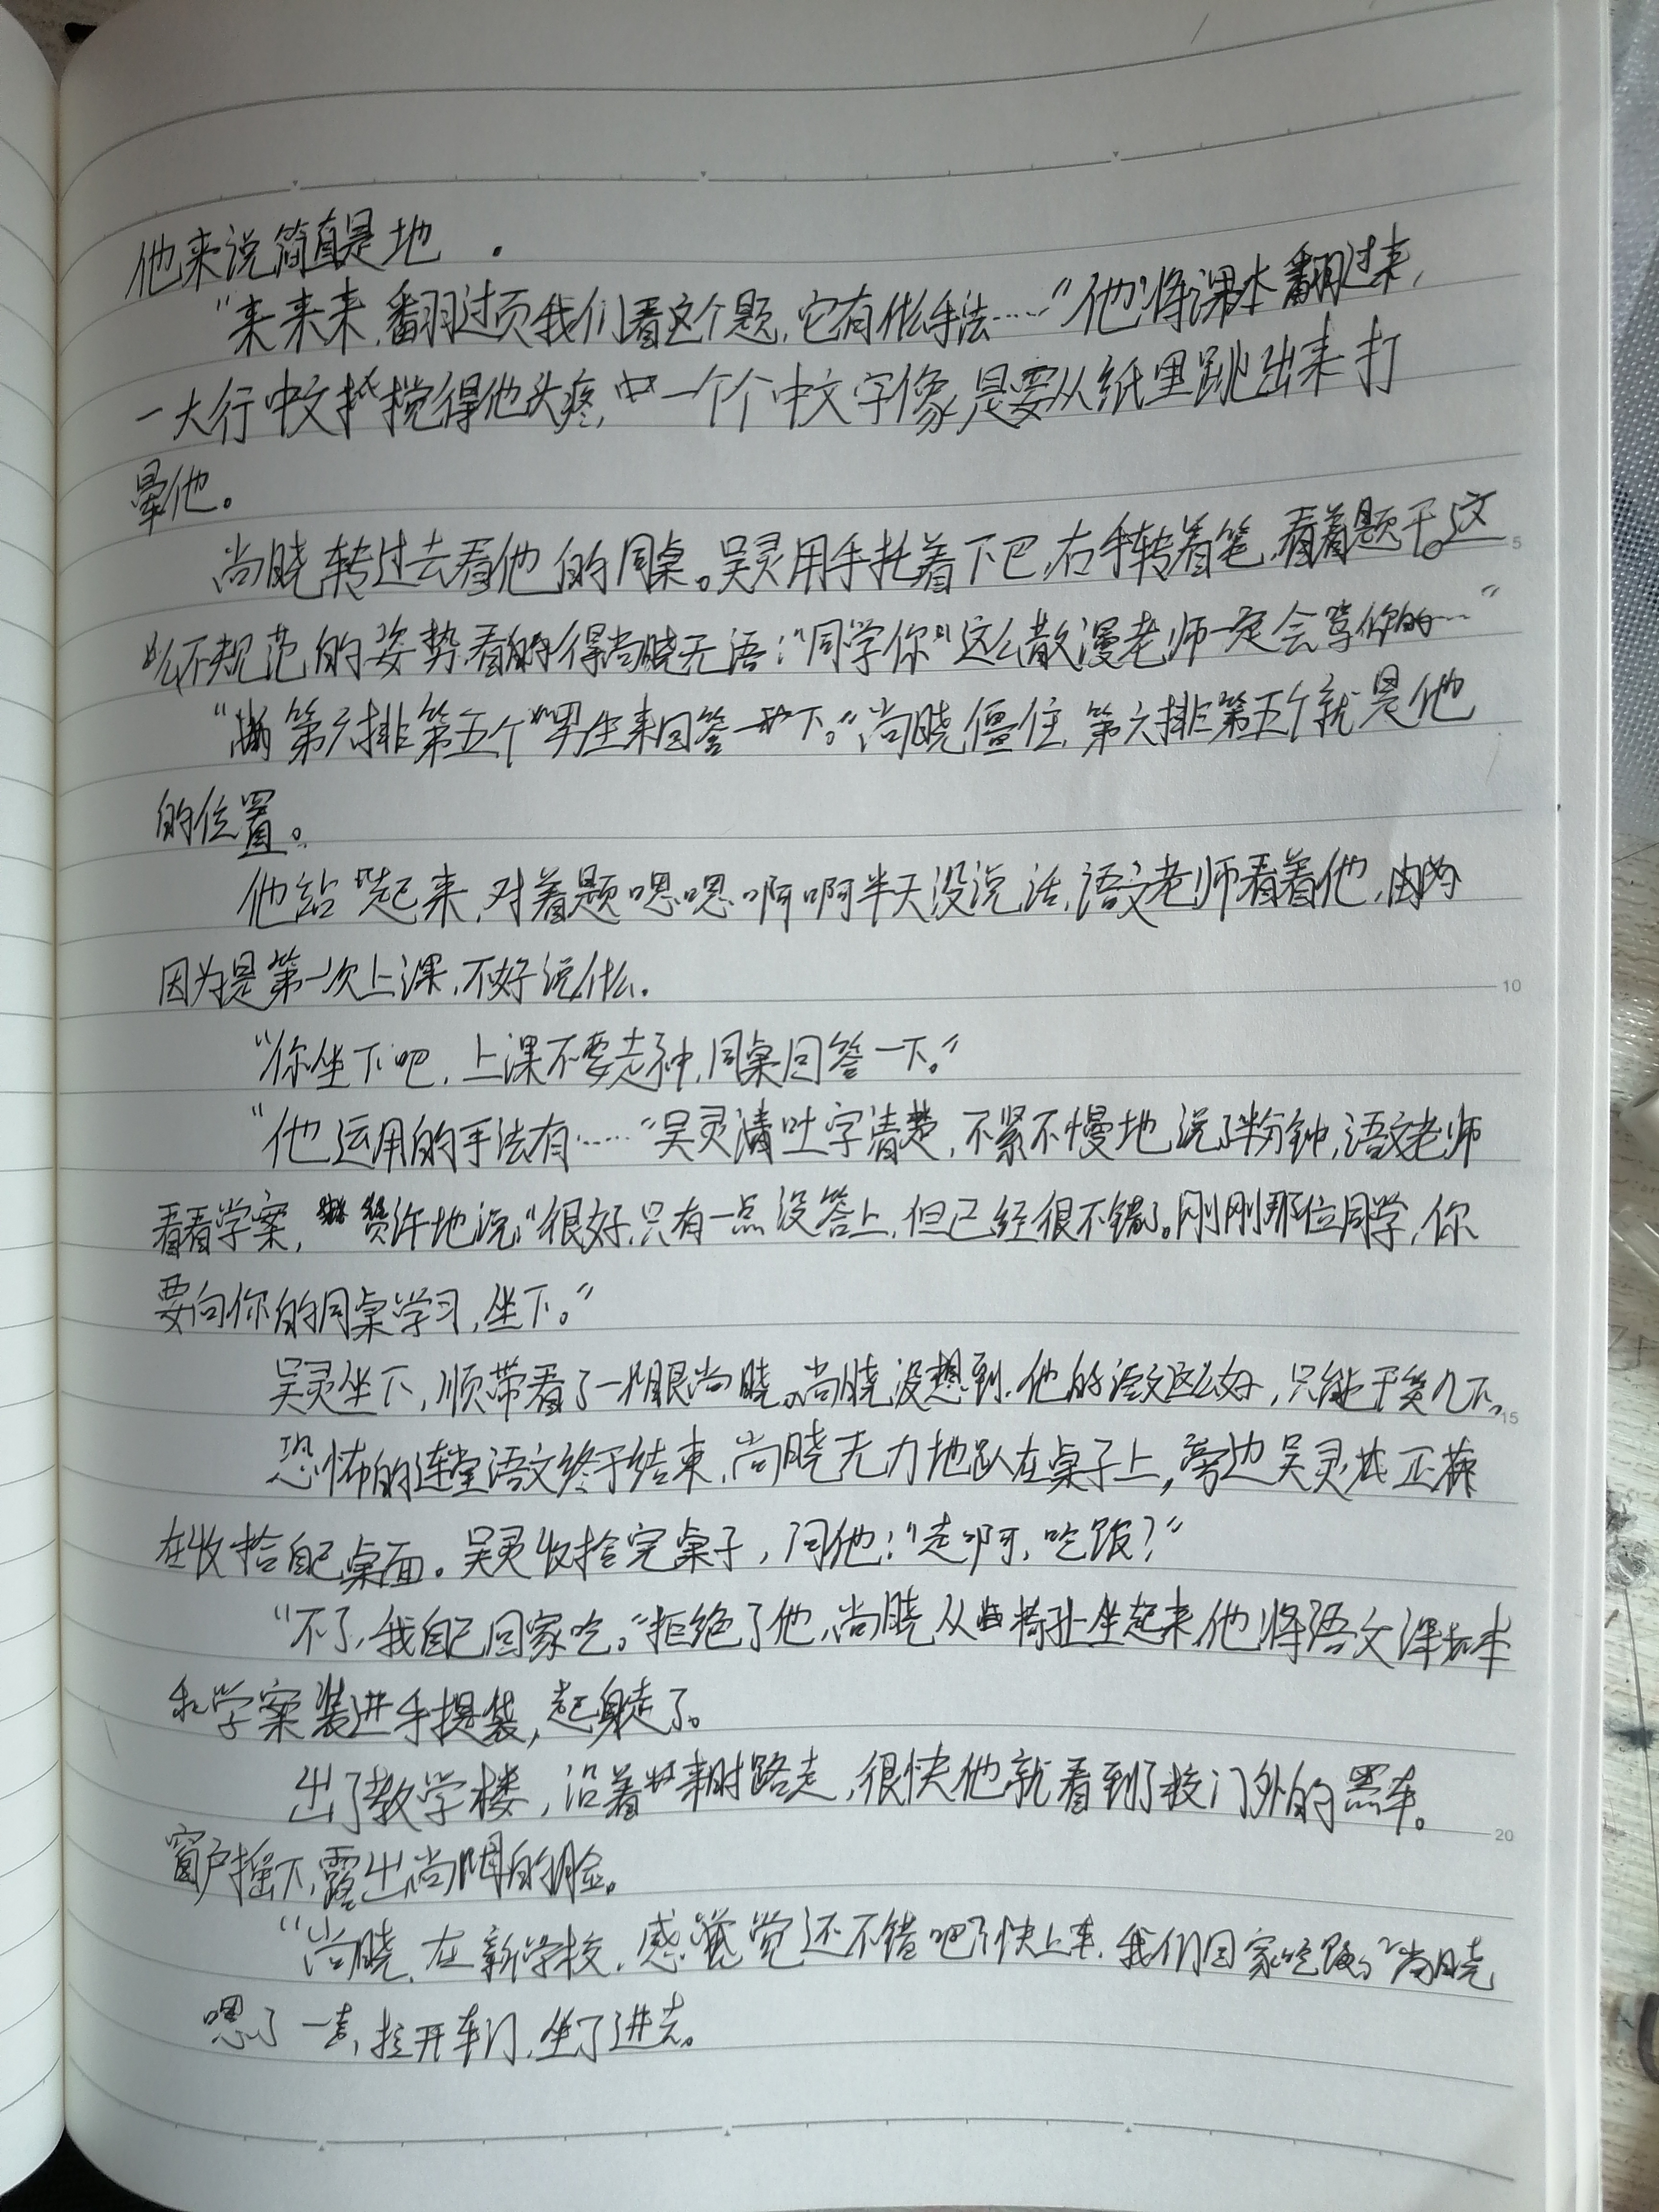 他来说简直是地 .
“来来来,翻过页我们看这个题,它有什么手法……”他将课本翻过来,
一大行中文字搅得他头疼,一个个中文字像是要从纸里跳出来打
晕他。
尚晓转过去看他的同桌。吴灵用手托着下巴,右手转着笔,看着题干。这
么不规范的姿势,看得尚晓无语:“同学你这么散漫老师一定会骂你的…”
“第六排第五个男生来回答一下。”尚晓僵住,第六排第五个就是他
的位置。
他站起来,对着题嗯嗯啊啊半天没说话,语文老师看着他,
因为是第一次上课,不好说什么.
“你坐下吧,上课不要走神,同桌回答一下。”
“他运用的手法有……”吴灵清吐字清楚,不紧不慢地说了半分钟,语文老师
看看学案,赞许地说:“很好,只有一点没答上,但已经很不错了。刚刚那位同学,你
要向你的同桌学习,坐下。”
吴灵坐下,顺带看了一眼尚晓。尚晓没想到他的语文这么好,只能干笑几下。
恐怖的连堂语文终于结束,尚晓无力地趴在桌子上,旁边吴灵正
在收拾自己桌面。吴灵收拾完桌子,问他:“走啊,吃饭?”
“不了,我自己回家吃。”拒绝了他,尚晓从椅子坐起来,他将语文课本
和学案装进手提袋,起身走了。
出了教学楼,沿着来时路走,很快他就看到了校门外的黑车。
窗户摇下,露出尚的脸。
“尚晓,在新学校,感觉还不错吧?快上车,我们回家吃饭。”尚晓
嗯了一声,拉开车门,坐了进去。